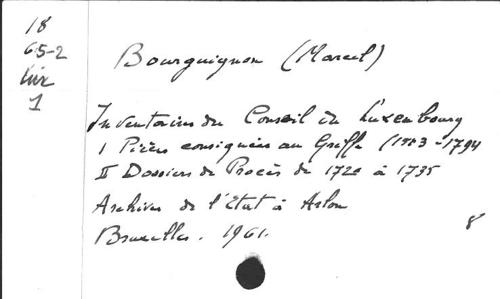 18
65-2
Lix
1
Bourguignon (Marcel)
Inventaires du Conseil de Luxembourg
I Pièces consignées au Greffe (1583-1794
II Dossiers de Procès de 1720 à 1735
Archives de l'Etat à Arlon
Bruxelles. 1961.
8